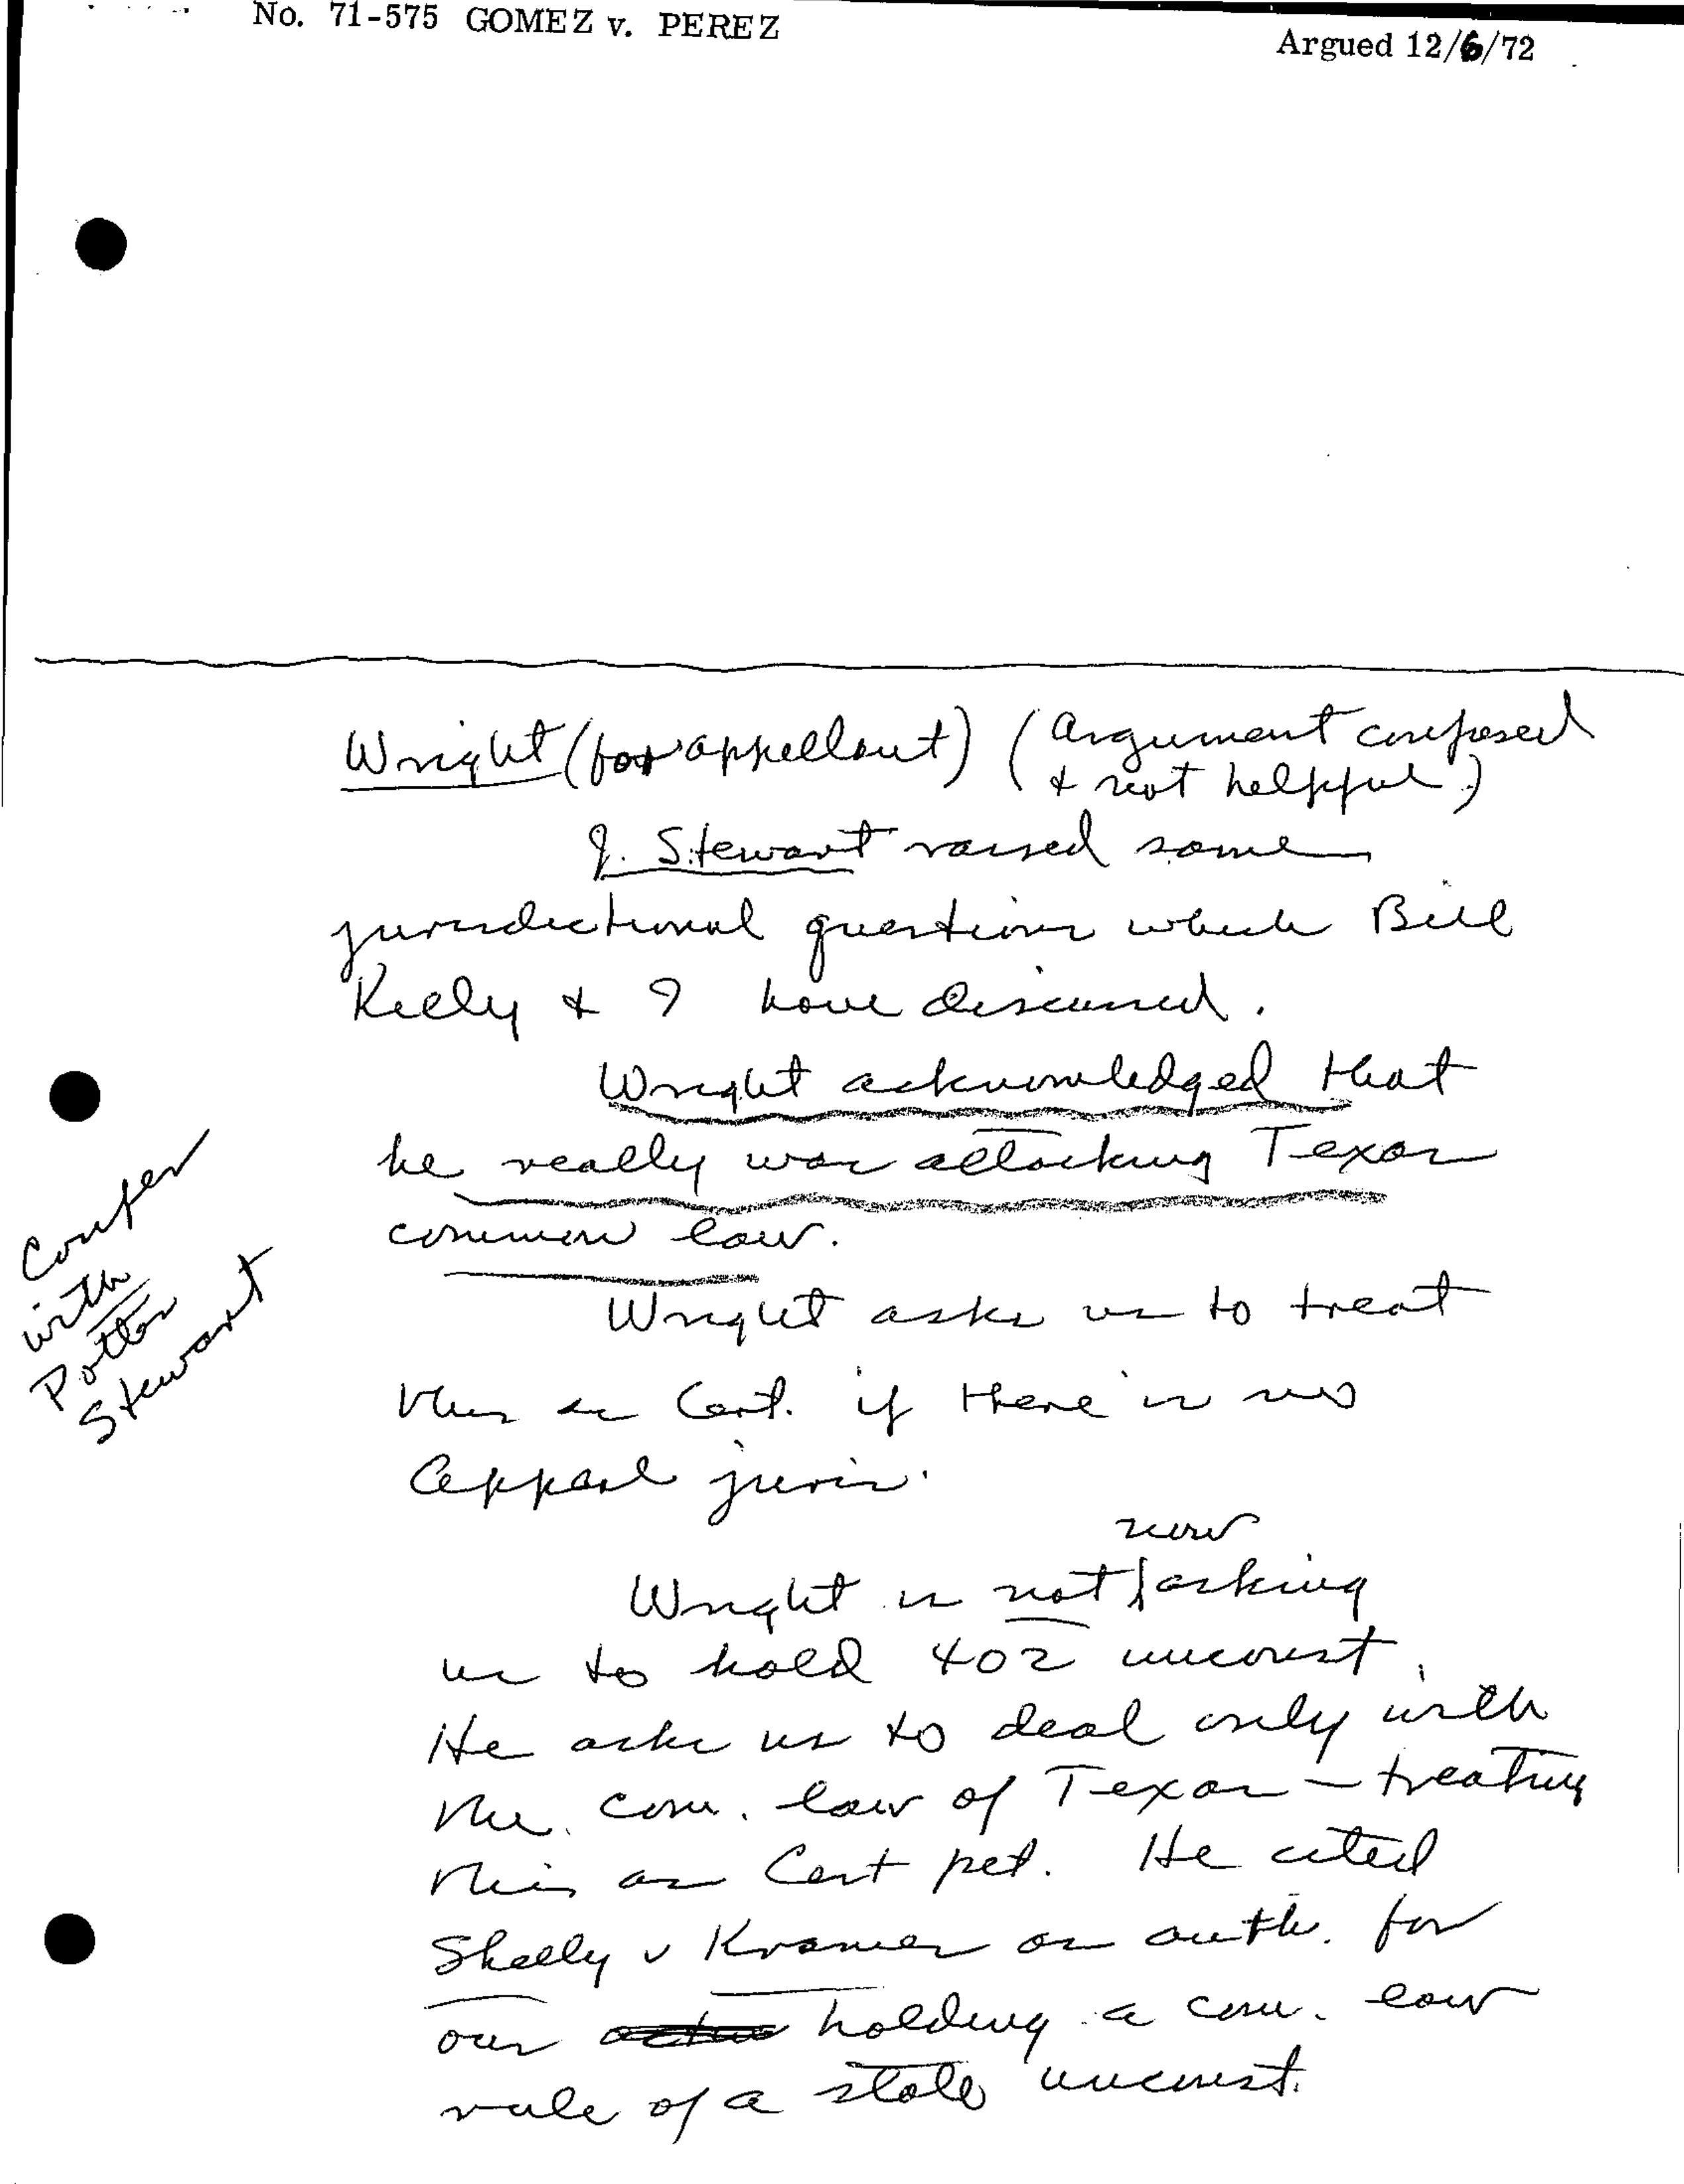 No. 71-575 GOMEZ v. PEREZ
Argued 12/6/72
Wright (for appellant) (Argument confused
& not helpful)
J. Stewart raised some
jurisdictional questions which Bill
Kelly & I have discussed.
Wright acknowledged that
he really was attacking Texas
common law.
Confer
with
Potter
Stewart
Wright asks us to treat
this as Cert. if there is no
Appeal juris.
now
Wright is not asking
us to hold 402 unconst.
He asks us to deal only with
the com. law of Texas - treating
this as Cert pet. He cited
Shelly v Kramer as auth. for
our holding a com. law
rule of a state unconst.